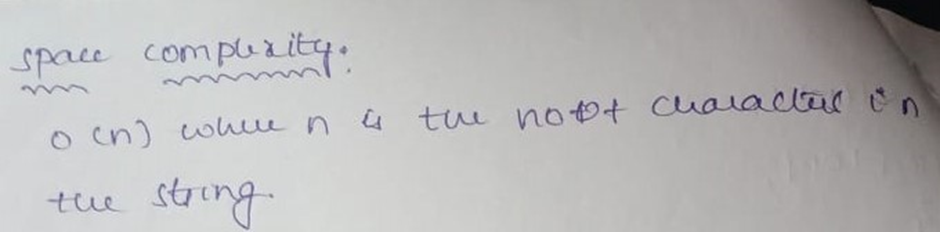 space complexity:
O(n) where n is the no of characters in
the string.